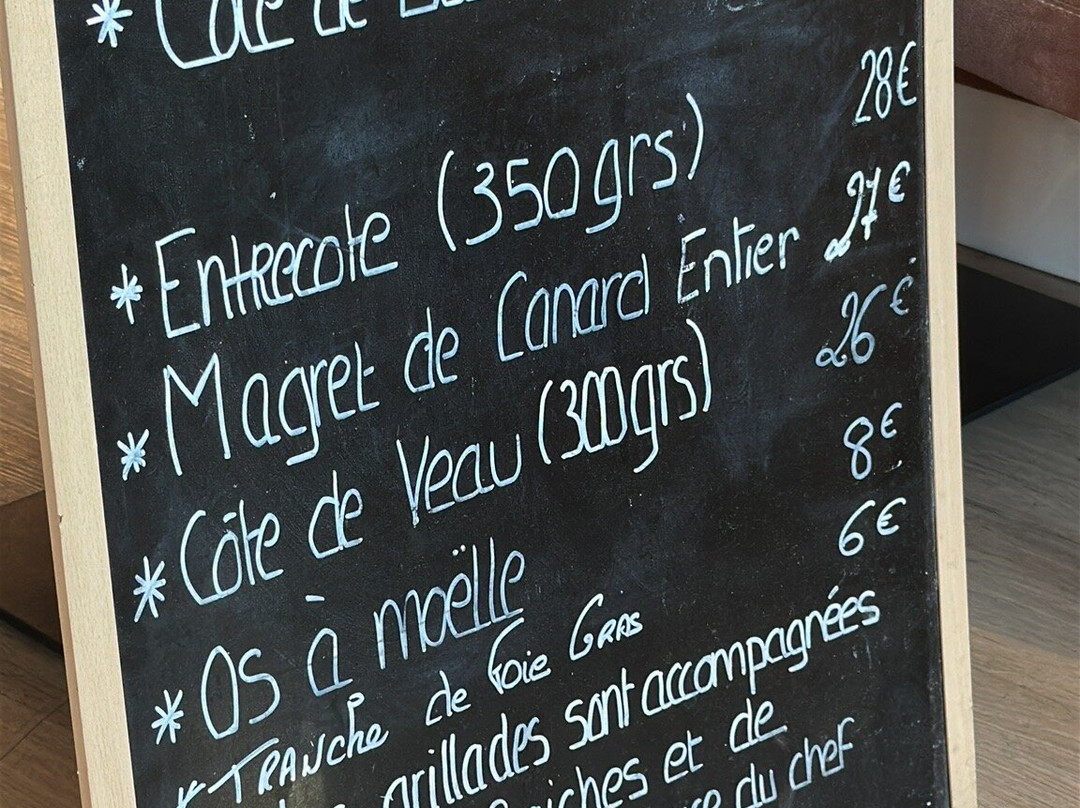 * Côte de
* Entrecote (350grs) 28€
* Magret de Canard Entier 27€
* Côte de Veau (300grs) 26€
* Os à moëlle 8€
* TRANche de Foie GRAS 6€
grillades sont accompagnées
et de
du chef